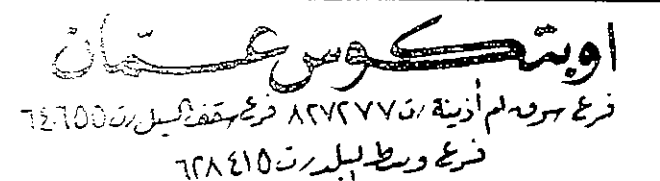 اوبتكوس عمّان
فرع سوق ام أذينة ت ٨٢٧٢٧٧ فرع سقف السيل ت ٦٤٦٥٥
فرع وسط البلد ت ٦٢٨٤١٥